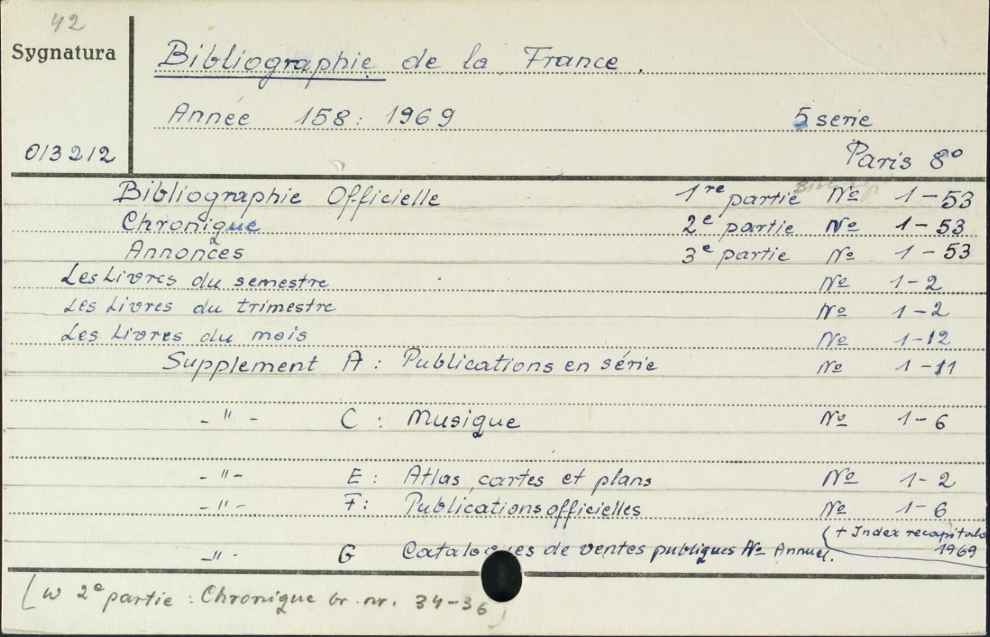 42
Sygnatura
Bibliographie de la France.
Année 158: 1969 5 serie
013212 Paris 8º
Bibliographie Officielle 1re partie Nº 1-53
Chronique 2e partie Nº 1-53
Annonces 3e partie Nº 1-53
Les Livres du semestre Nº 1-2
Les Livres du trimestre Nº 1-2
Les Livres du mois Nº 1-12
Supplement A: Publications en série Nº 1-11
-"- C: Musique Nº 1-6
-"- E: Atlas, cartes et plans Nº 1-2
-"- F: Publications officielles Nº 1-6
(+ Index recapitula
-"- G Catalogues de ventes publiques Nº Annuel. 1969
[w 2e partie: Chronique br. nr. 34-36]